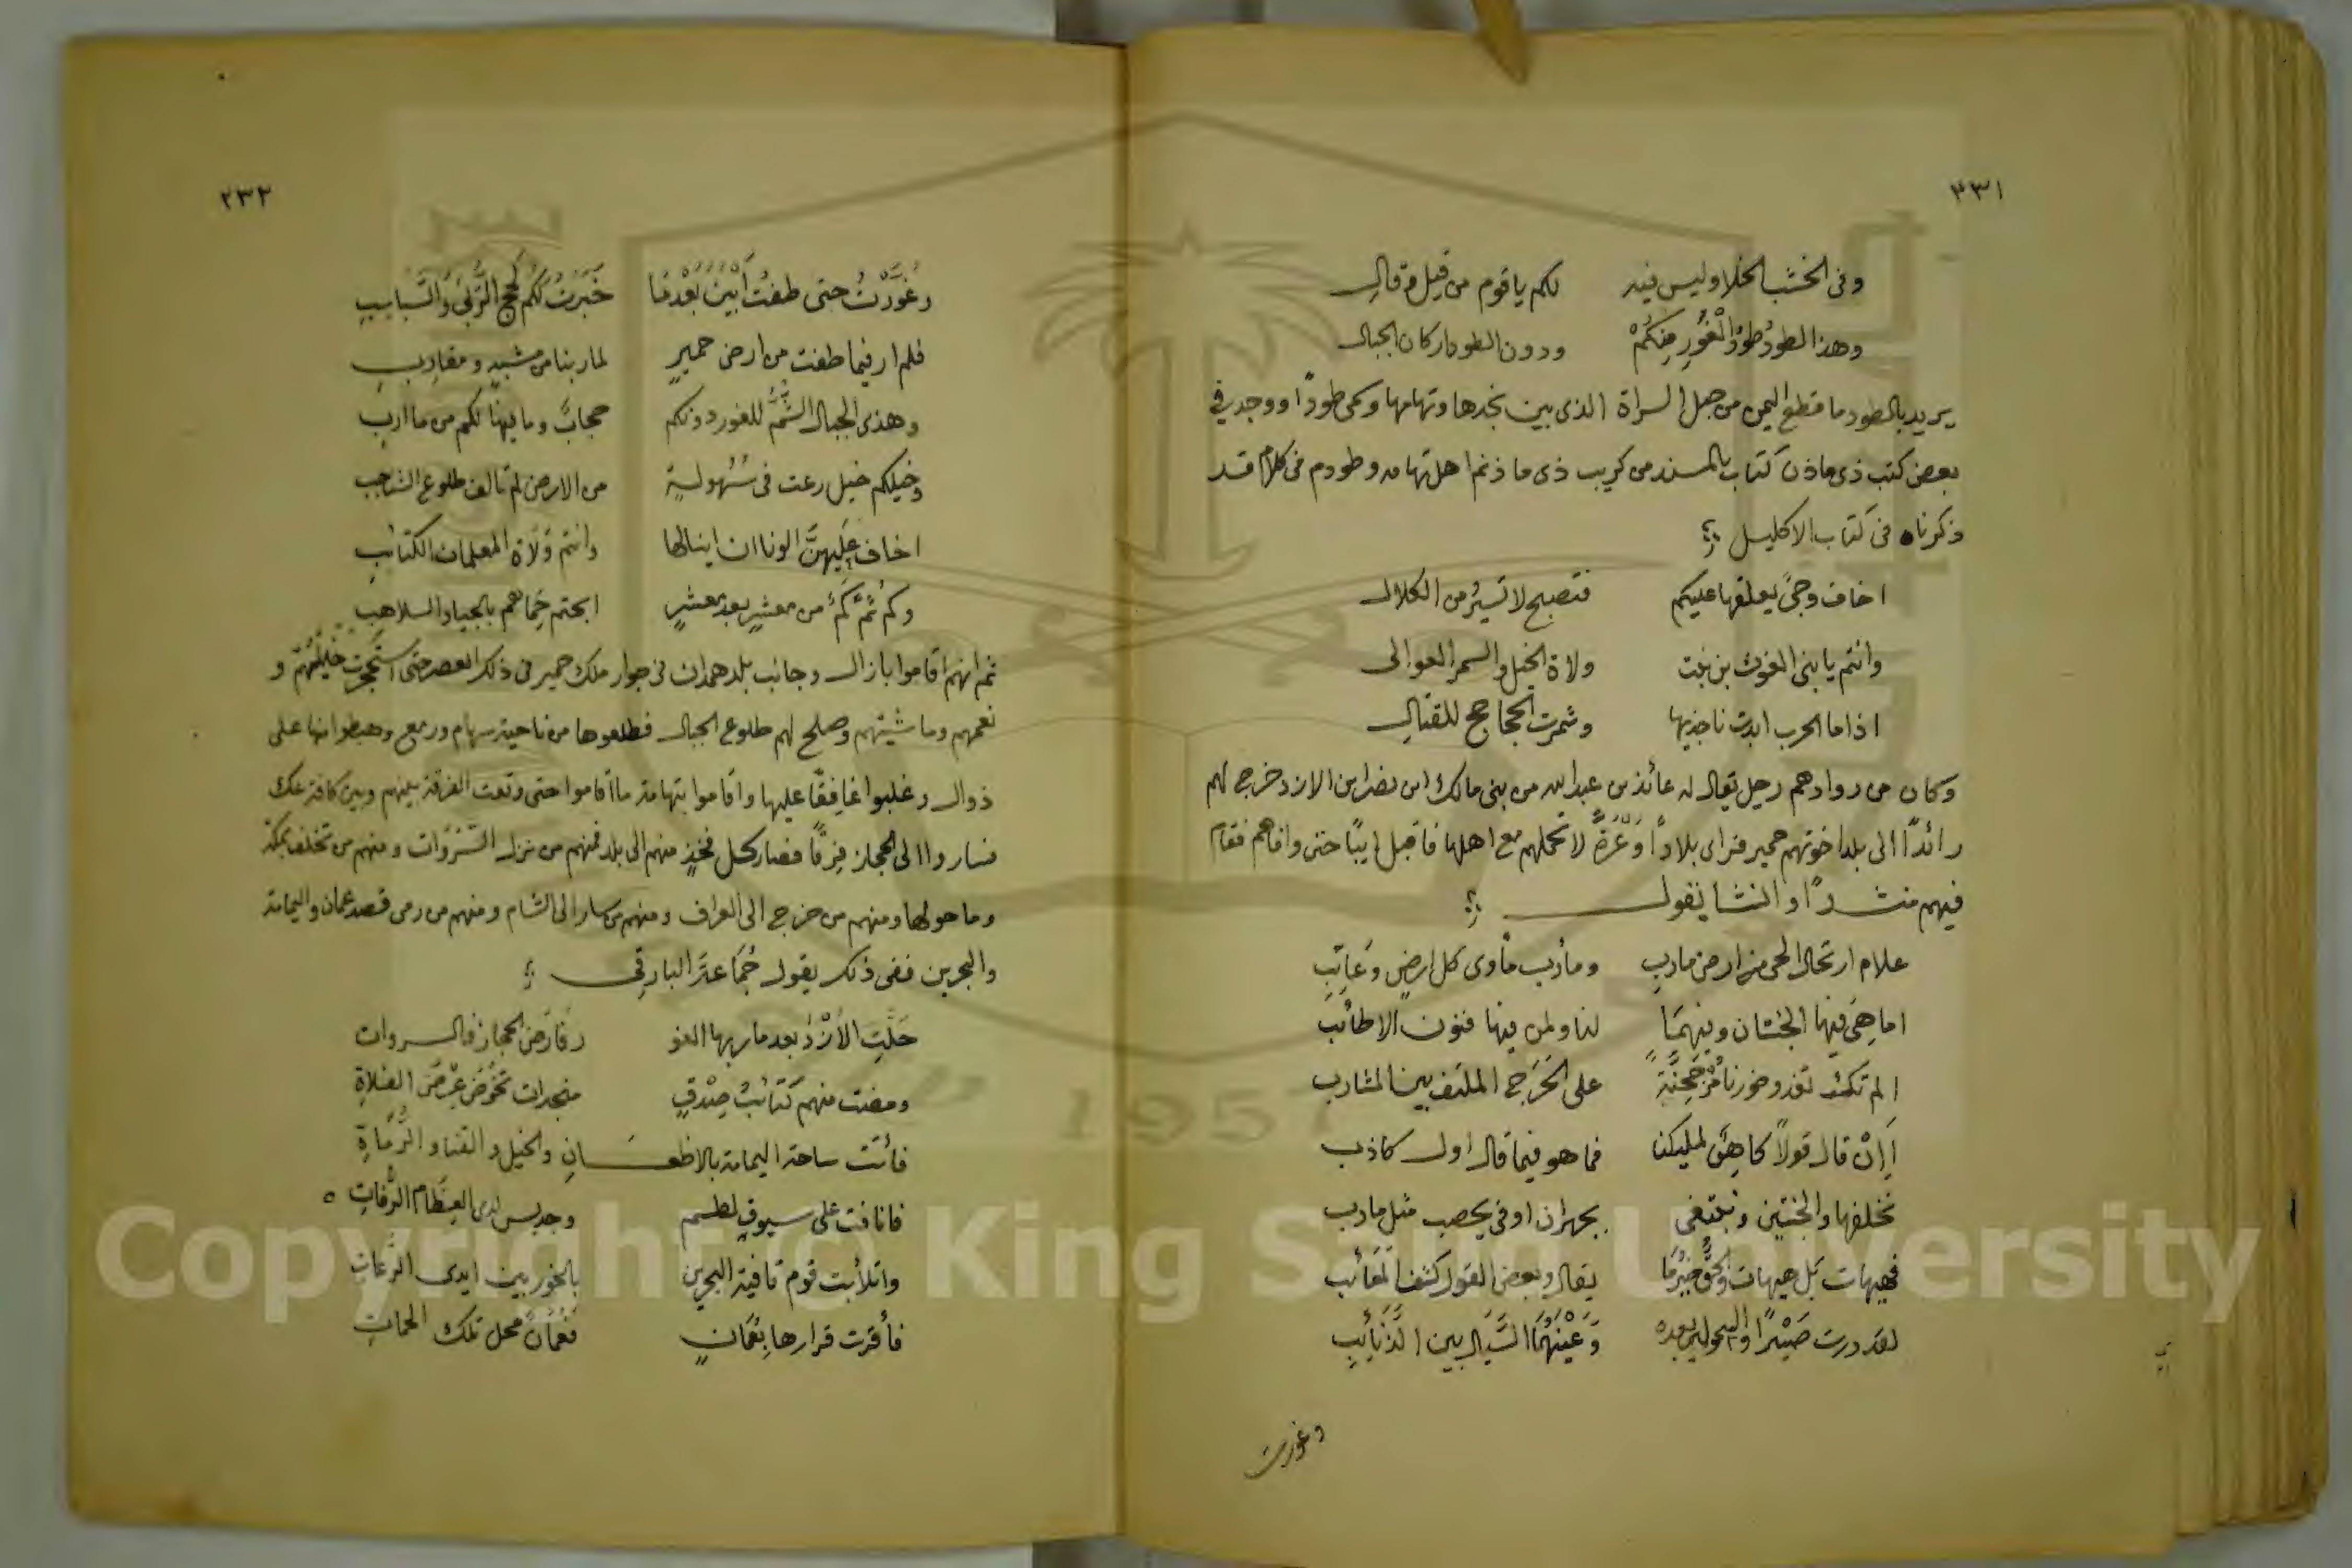 ٣٣١
وفى الخشب الخلا وليس فيه لكم يا قوم من قيل وقال
وهذا الطود طَوْدُ الْغَوْرِ مِنكُمْ ودون الطود اركان الجبال
يريد بالطود ما قطع اليمن من جبل السراة الذى بين نجدها وتهامها وسمى طودًا ووجد فى
بعض كتب ذى ماذن كتاب بالمسند من كريب ذى ماذنم اهل تهامه وطودم فى كلام قد
ذكرناه فى كتاب الاكليل
اخاف وجىً يعلقها عليكم فتصبح لا تسيرُ من الكلال
وانتم يا بنى الغوث بن نبت ولاة الخيل والسمر العوالى
اذا ما الحرب ابدت ناجذيها وشمرت الحجاجح للقتال
وكان من روادهم رجل يقال له عائذ بن عبدالله من بنى مالك ابن نصر ابن الازد خرج لهم
رائدًا الى بلد اخوتهم حمير فراى بلادًا وَعْرَةً لا تحملهم مع اهلها فاقبل ايبًا حتى وافاهم فقام
فيهم منشدًا وانشا يقول
علام ارتحال الحى من ارض مارب ومأرب مأوى كل ارضٍ وعَاتِبِ
اما هِىَ فيها الجنتان وفيهمَا لنا ولمن فيها فنون الاطائب
الم تكُ تغدو خورنا مُرْجَحِنَّةً على الحَرَج الملتف بين المشارب
أَإِنْ قال قولاً كاهِنٌ لمليكنا فما هو فيما قال اول كاذب
نخلفها والجنتين ونبتغى بجهران او فى يحصب مثل مارب
فهيهات بَل هيهات والحقُّ خَيْرُمَا يقال وبعض القول كشف المَعَائب
لقد درت صَيْدًا والسحولين بعده وَعَيْنَهُمَا السَّيَال بين الذَّنَائِبِ
وغورت
٢٣٢
وغَوَّرْتُ حتى طفتُ أَبْيَنَ بَعْدَمَا خَبَرْتُ لكم لُحج الرُّبَى وَالسَّبَاسِبِ
فلم ار فيما طفت من ارض حميرٍ لمأربنا من مشبهٍ ومقارب
وهذى الجبال الشُّمُّ للغور دونكم حجابٌ وما فيها لكم من مأرب
وخيلكم خيل رعت فى سُهُولَةٍ من الارض لم تالف طلوع الشناخب
اخاف عَلَيهِنَّ الونا ان ينالها وانتم وُلَاة المعلمات الكتائب
وكم ثَمَّ كَمْ من معشرٍ بعد معشرٍ ابحتم حِمَاهم بالجياد السلاهب
ثم انهم اقاموا بازال وجانب بلد همدان فى جوار ملك حمير فى ذلك العصر حتى استحجرت خَيْلُهُمْ و
نعمهم وماشيتهم وصلح لهم طلوع الجبال فطلعوها من ناحية سهام ورمع وهبطوا منها على
ذوال وغلبوا غافقًا عليها واقاموا بتهامة ما اقاموا حتى وقعت الفرقة بينهم وبين كافة عك
فساروا الى الحجاز فِرَقًا فصار كل فخذٍ منهم الى بلد فمنهم من نزل السَّرَوَات ومنهم من تخلف بمكة
وما حولها ومنهم من خرج الى العراق ومنهم من سار الى الشام ومنهم من رمى قصد عمان واليمامة
والبحرين ففى ذلك يقول جُمَاعَة البارقى
حَلَّتِ الأَزْدُ بعد ماربها الغو ر فأرضَ الحجاز فالسروات
ومضت منهم كَتَائبُ صِدْقٍ منجدات تخُوضُ عَرْضَ الفلاةِ
فأتت ساحة اليمامة بالاظعــانِ والخيل والقنا والرُّمَاةِ
فانافت على سيوفٍ لطسم وجديسٍ لدى العِظَام الرُّفاتِ
واتلأبت تؤم قافية البحرين بالخور بين ايدى الرُّعاتِ
فأقرت قرارها بِعُمَانٍ فعُمَانٌ محل تلك الحماتِ
Copyright © King Saud University
1957